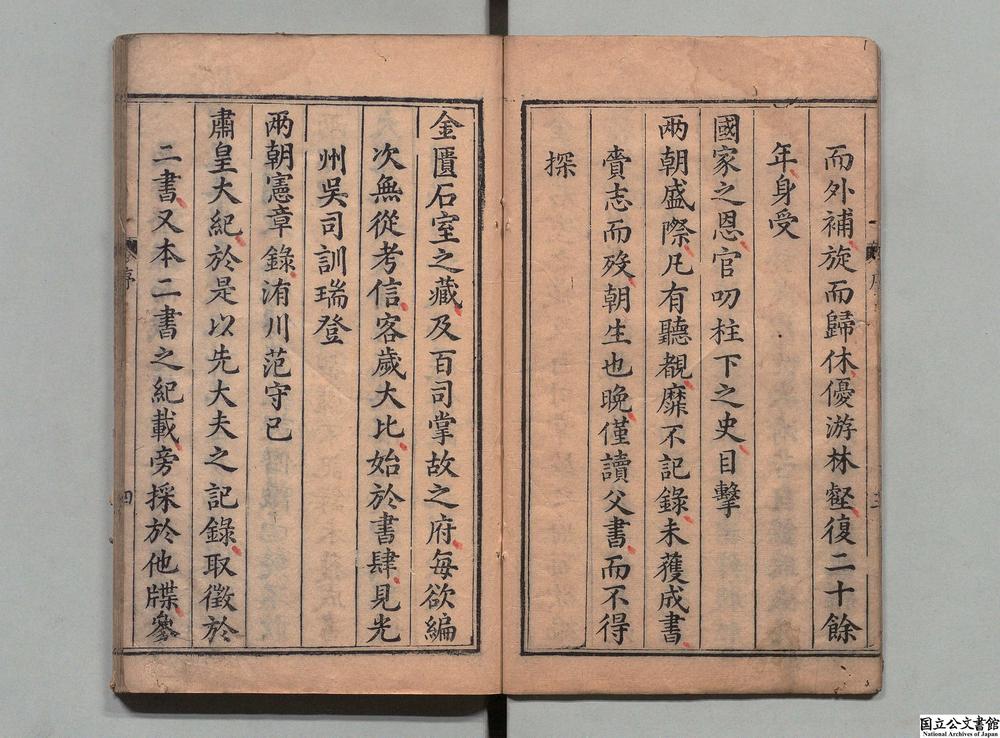 而外補旋而歸休優游林壑復二十餘
年身受
國家之恩官叨柱下之史目擊
兩朝盛際凡有聽覩靡不記錄未獲成書
賫志而歿朝生也晚僅讀父書而不得
探
三
金匱石室之藏及百司掌故之府每欲編
次無從考信客歲大比始於書肆見光
州吳司訓瑞登
兩朝憲章錄洧川范守已
肅皇大紀於是以先大夫之記錄取徵於
二書又本二書之紀載旁採於他牒參
序
四
国立公文書館
National Archives of Japan